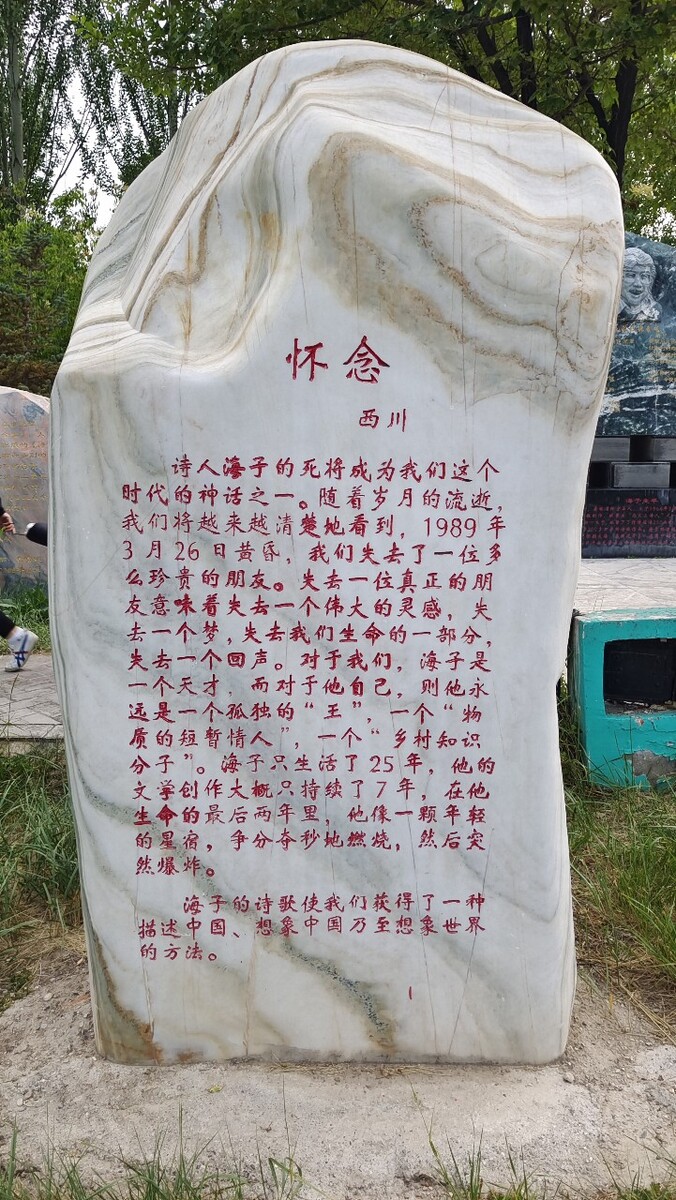 怀念
西川
诗人海子的死将成为我们这个
时代的神话之一。随着岁月的流逝,
我们将越来越清楚地看到, 1989年
3月26日黄昏, 我们失去了一位多
么珍贵的朋友。失去一位真正的朋
友意味着失去一个伟大的灵感, 失
去一个梦, 失去我们生命的一部分,
失去一个回声。对于我们, 海子是
一个天才, 而对于他自己, 则他永
远是一个孤独的“王”, 一个“物
质的短暂情人”, 一个“乡村知识
分子”。海子只生活了25年, 他的
文学创作大概只持续了7年, 在他
生命的最后两年里, 他像一颗年轻
的星宿, 争分夺秒地燃烧, 然后突
然爆炸。
海子的诗歌使我们获得了一种
描述中国、想象中国乃至想象世界
的方法。